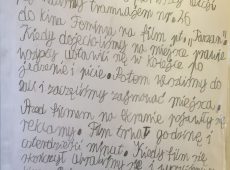 tramwajem nr. 26
do kina Feminy na film pt. „Tarzan"
Kiedy dojechaliśmy na miejsce prawie
wszyscy ustawili się w kolejce po
jedzenie i picie. Potem weszliśmy do
sali i zaczęliśmy zajmować miejsca.
Przed filmem na ekranie pojawiły się
reklamy. Film trwał godzinę i
czterdzieści minut. Kiedy film się
skończył ubraliśmy się i